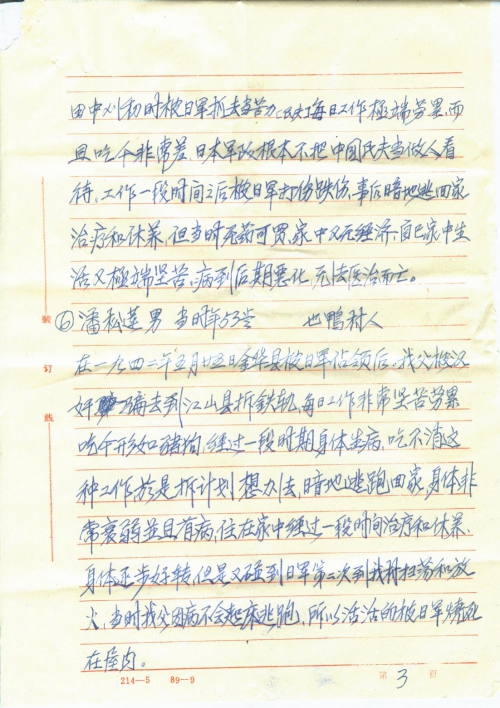 田中川初时被日军抓去当苦力、民夫每日工作極端劳累,而
且吃个非常差、日本军队根本不把中国民夫当做人看
待、工作一段时间之后被日军打伤跌伤、事后暗地逃回家
治疗和休养、但当时无药可買、家中又无经济、自已家中生
活又極端坚苦、病到后期恶化、无法医治而亡。
⑥潘松莲 男 当时年53岁 也鸭村人
在一九四二年五月廿五日金华县被日军佔领后、我父被汉
奸 骗去到江山县拆鉄軌、每日工作非常坚苦劳累
吃个形如豬狗、经过一段时期身体生病、吃不消这
种工作於是拆计划想办法、暗地逃跑回家、身体非
常衰弱並且有病、住在家中经过一段时间治疗和休养、
身体正步好转、但是又碰到日军第二次到我村扫荡和放
火、当时我父因病不会起来逃跑、所以活活的被日军烧死
在屋内。
装
订
线
214—5 89—9
第 3 页